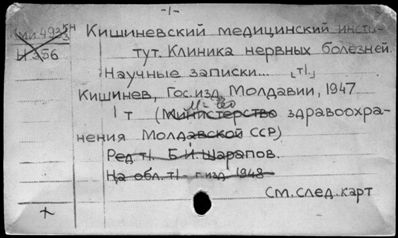 -1-
Кишиневский медицинский инсти-
тут. Клиника нервных болезней
Научные записки... т1
Кишинев, Гос.изд. Молдавии, 1947
М-во
1 т (Министерство здравоохра-
нения Молдавской ССР)
Ред т1. Б.И. Шарапов.
На обл. т1 - г изд. 1948
См. след. карт